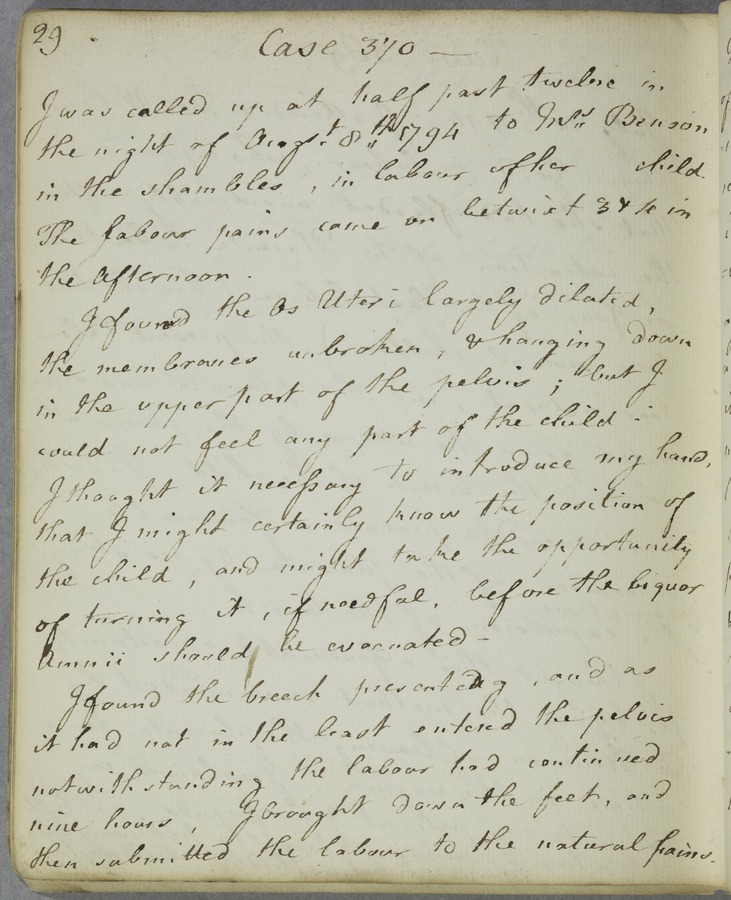 29
Case 370 —
I was called up at half past twelve in
the night of Augst. 8th 1794 to Mrs. Benson
in the shambles, in labour of her child.
The labour pains came on betwixt 3 & 4 in
the afternoon.
I found the Os Uteri largely dilated,
the membranes unbroken, & hanging down
in the upper part of the pelvis; but I
could not feel any part of the child.
I thought it necessary to introduce my hand,
that I might certainly know the position of
the child, and might take the opportunity
of turning it, if needful, before the liquor
Amnii should be evacuated —
I found the breech presenting, and as
it had not in the least entered the pelvis
notwithstanding the labour had continued
nine hours, I brought down the feet, and
then submitted the labour to the natural pains.